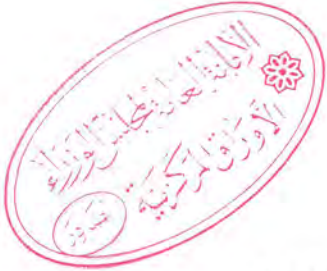 الأمانة العامة لمجلس الوزراء
الأوراق المركزية